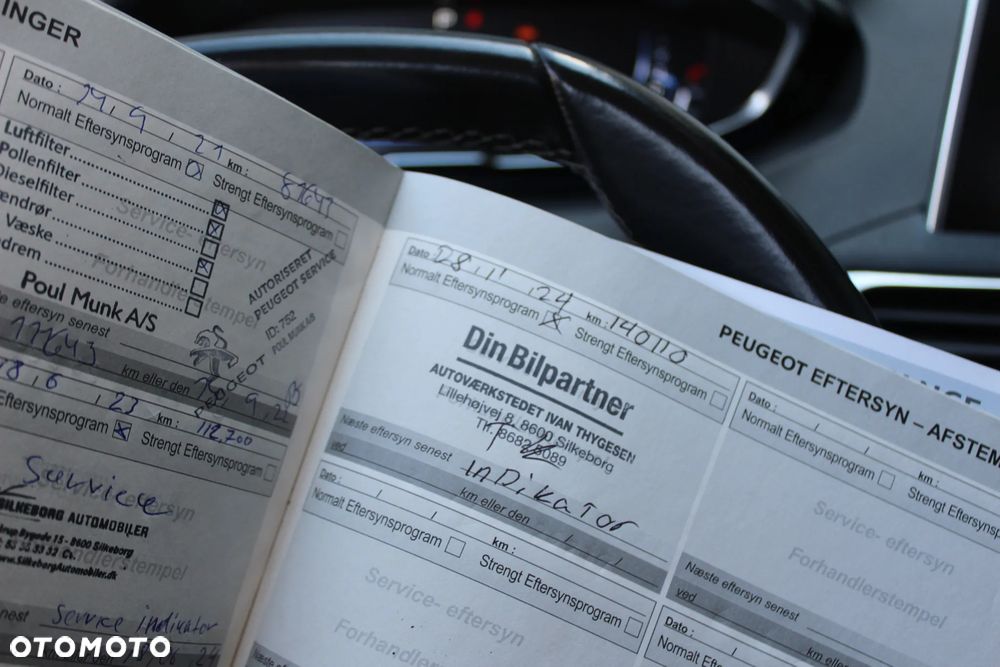 INGER
Dato : 14, 9, 21 km :
Normalt Eftersynsprogram Strengt Eftersynsprogram
Luftfilter
Pollenfilter
Dieselfilter
ændrør
Væske
drem
Service- eftersyn
Forhandlerstempel
Poul Munk A/S
AUTORISERET
PEUGEOT SERVICE
ID: 752
POUL MUNK AB
PEUGEOT
e eftersyn senest
km eller den
8, 6, 23 km : 112.700
Eftersynsprogram Strengt Eftersynsprogram
Service
SILKEBORG AUTOMOBILER
8600 Silkeborg
www.SilkeborgAutomobiler.dk
Forhandlerstempel
enest Service indikator
Dato 28, 11, 24 km : 140110
Normalt Eftersynsprogram Strengt Eftersynsprogram
Din Bilpartner
AUTOVÆRKSTEDET IVAN THYGESEN
Lillehøjvej 8 / 8600 Silkeborg
Næste eftersyn senest inDikator
ved km eller den / /
PEUGEOT EFTERSYN – AFSTEM
Dato : / / km :
Normalt Eftersynsprogram Strengt Eftersynsprog
Service- eftersyn
Forhandlerstempel
Næste eftersyn senest
ved km eller
Dato : / / km :
Normalt Eftersynsprogram Strengt Eftersynsprogram
Service- eftersyn
Forhand
Næste efter
Dato :
Normalt
OTOMOTO